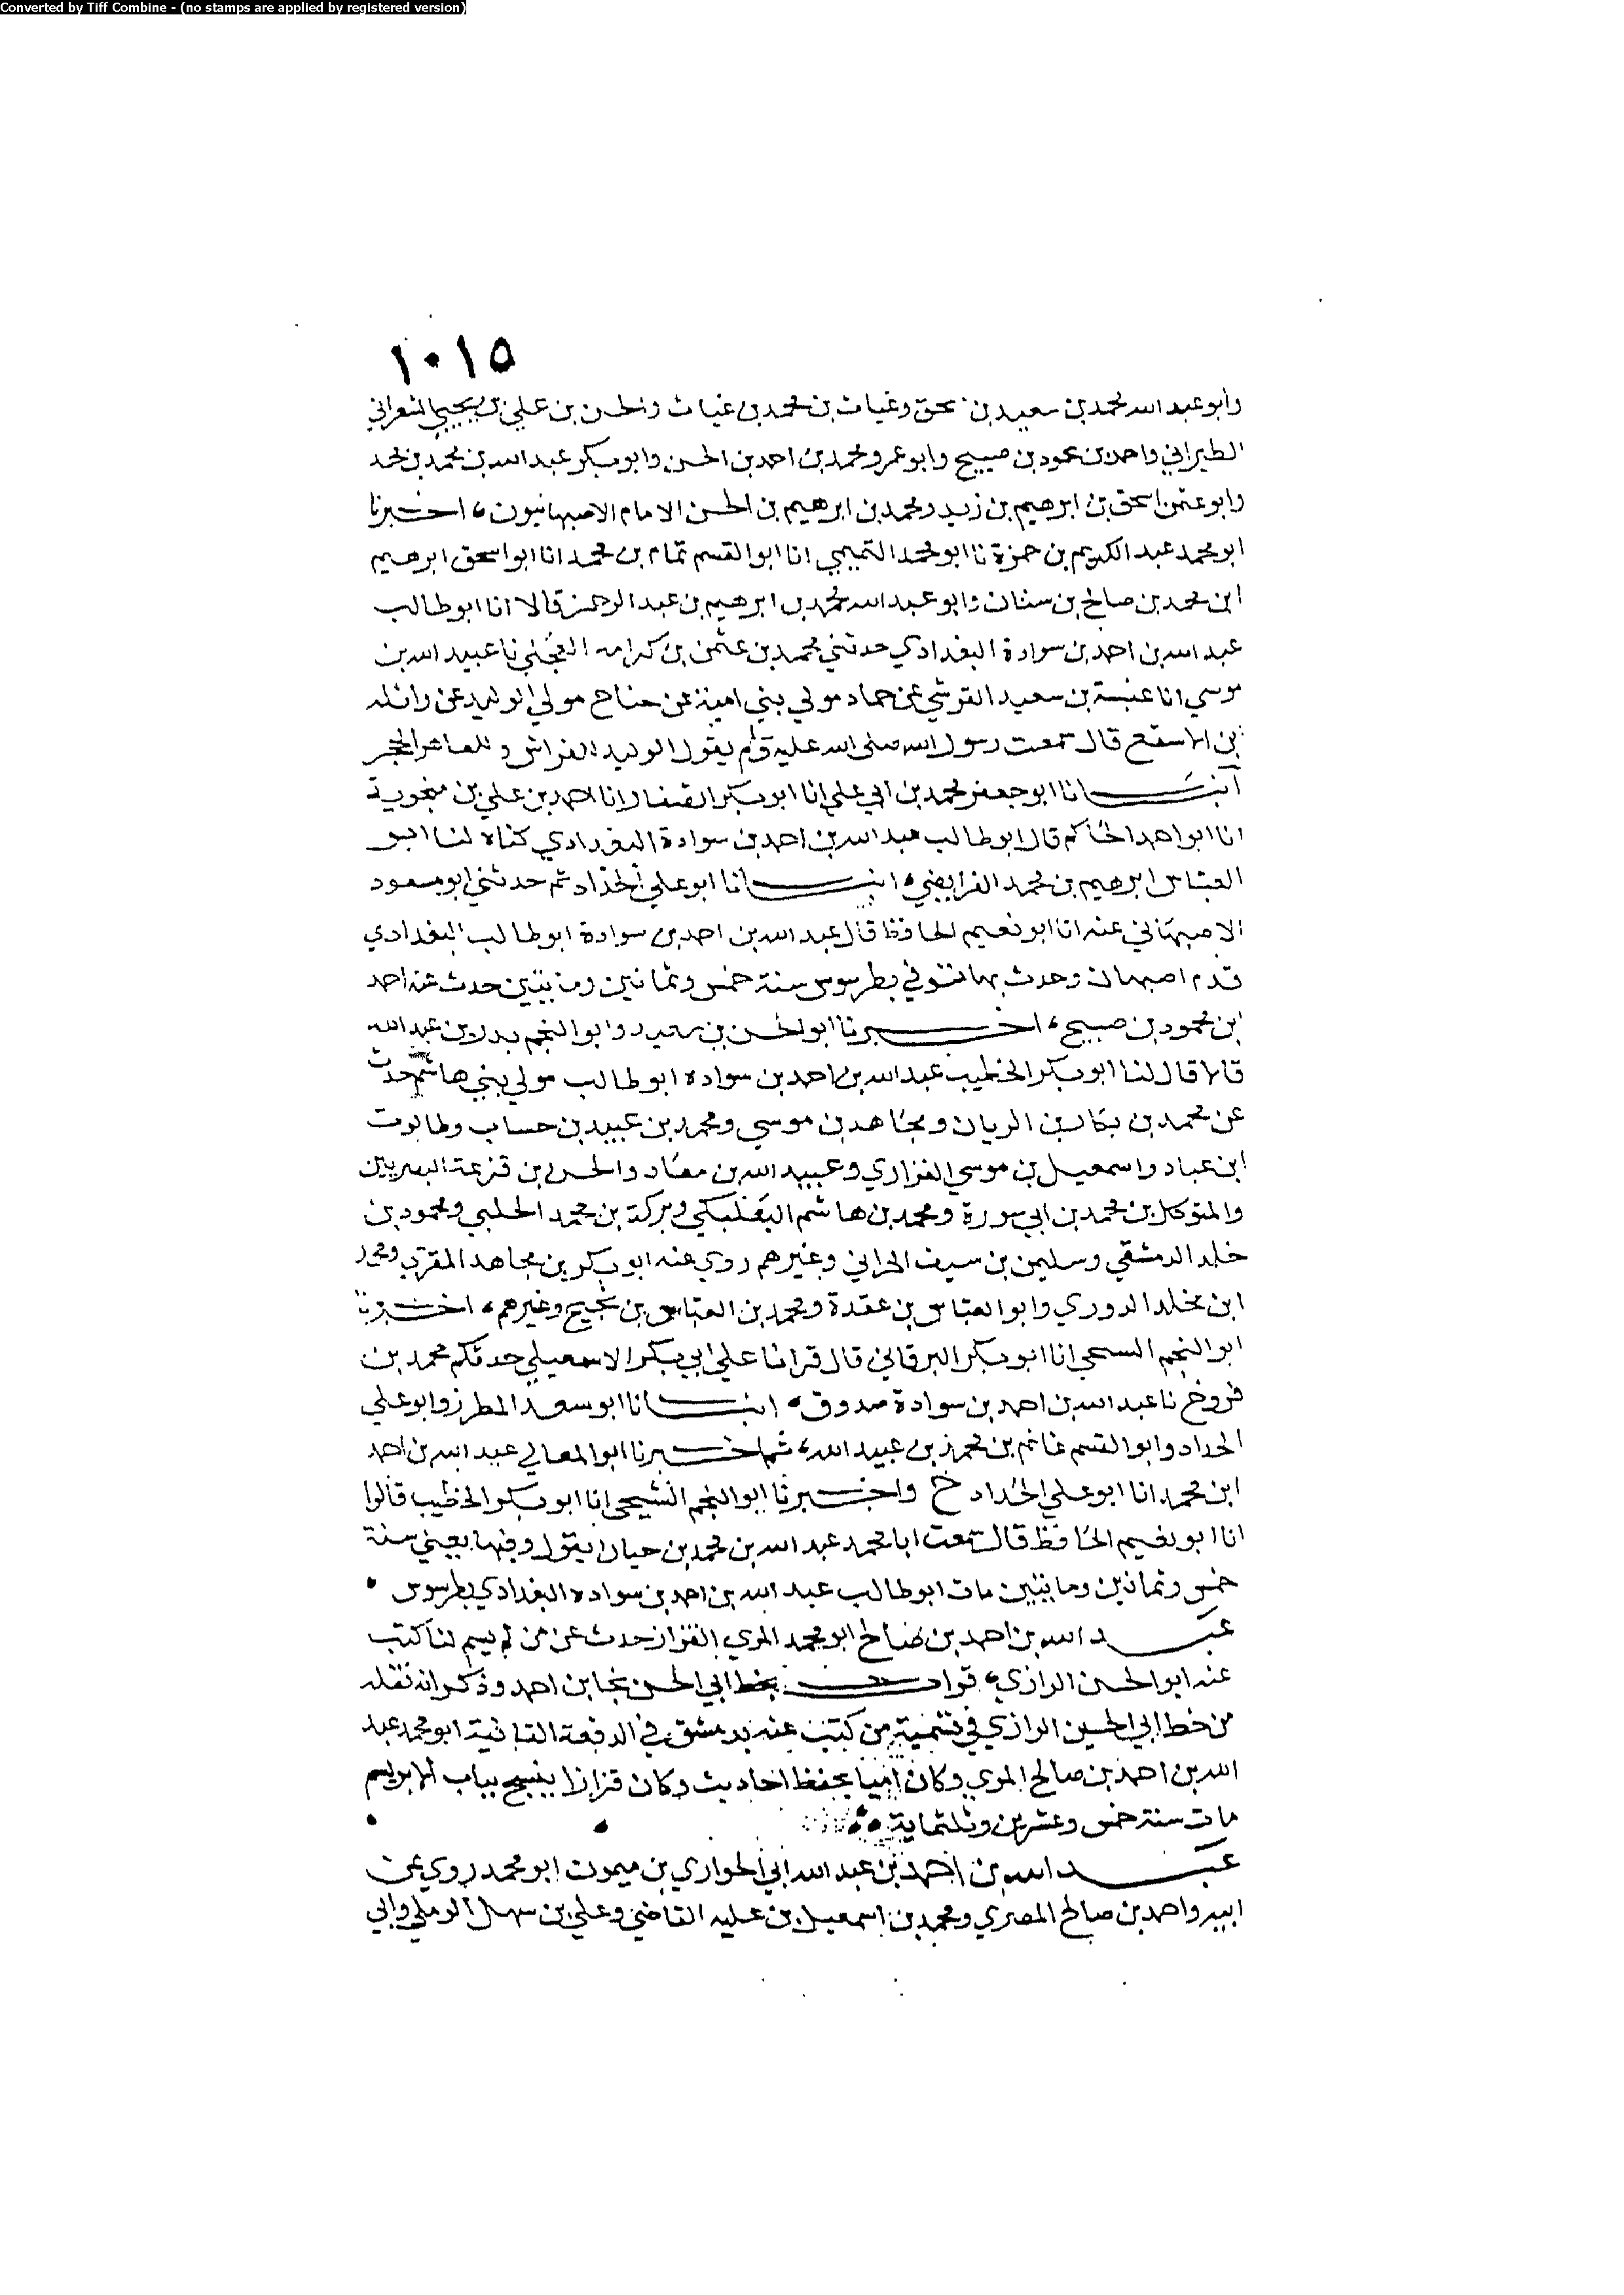 Converted by Tiff Combine - (no stamps are applied by registered version)
١٠١٥
وابو عبد الله محمد بن سعيد بن اسحق وغياث بن محمد بن غياث والحسن بن علي بن يحيى الشعراني
الطبراني واحمد بن محمود بن صبيح وابو عمرو محمد بن احمد بن الحسن وابو بكر عبد الله بن محمد بن محمد
وابو عثمن اسحق بن ابرهيم بن زيد ومحمد بن ابرهيم بن الحسن الامام الاصبهانيون، اخبرنا
ابو محمد عبد الكريم بن حمزة نا ابو محمد التميمي انا ابو القسم تمام بن محمد انا ابو اسحق ابرهيم
ابن محمد بن صالح بن سنان وابو عبد الله محمد بن ابرهيم بن عبد الرحمن قالا انا ابو طالب
عبد الله بن احمد بن سوادة البغدادي حدثني محمد بن عثمن بن كرامه العجلي نا عبيد الله بن
موسي انا عنبسة بن سعيد القرشي عن حماد مولي بني امية عن جناح مولي الوليد عن واثله
بن الاسقع قال سمعت رسول الله صلى الله عليه وسلم يقول الوليد للفراش وللعاهر الحجر
انبانا ابو جعفر محمد بن ابي علي انا ابو بكر الصفار انا احمد بن علي بن منجوية
انا ابو احمد الحاكم قال ابو طالب عبد الله بن احمد بن سوادة البغدادي كناه لنا ابو
العباس ابرهيم بن محمد الفرايضي، انبانا ابو علي الحداد ثم حدثني ابو مسعود
الاصبهاني عنه انا ابو نعيم الحافظ قال عبد الله بن احمد بن سوادة ابو طالب البغدادي
قدم اصبهان وحدث بها توفي بطرسوس سنة خمس وثمانين ومايتين حدث عنه احمد
ابن محمود بن صبيح، اخبرنا ابو الحسن بن سعيد وابو النجم بدر بن عبد الله
قالا قال لنا ابو بكر الخطيب عبد الله بن احمد بن سواده ابو طالب مولي بني هاشم حدث
عن محمد بن بكار بن الريان ومجاهد بن موسي ومحمد بن عبيد بن حساب وطالوت
ابن عباد واسمعيل بن موسي الفزاري وعبيد الله بن معاد والحسن بن قزعة البصريين
والمتوكل بن محمد بن ابي سورة ومحمد بن هاشم البعلبكي وبركة بن محمد الحلبي ومحمود بن
خلد الدمشقي وسليمن بن سيف الحراني وغيرهم روي عنه ابو بكر بن مجاهد المقري ومحمد
ابن مخلد الدوري وابو العباس بن عقدة ومحمد بن العباس بن نجيح وغيرهم، اخبرنا
ابو النجم السحي انا ابو بكر البرقاني قال قرانا علي ابي بكر الاسمعيلي حدثكم محمد بن
فروخ نا عبد الله بن احمد بن سوادة صدوق، انبانا ابو سعد المطرز وابو علي
الحداد وابو القسم غانم بن محمد بن عبيد الله، ثم اخبرنا ابو المعالي عبد الله بن احمد
ابن محمد انا ابو علي الحداد ح واخبرنا ابو النجم الشيحي انا ابو بكر الخطيب قالوا
انا ابو نعيم الحافظ قال سمعت ابا محمد عبد الله بن محمد بن حيان يقول وفيها يعني سنة
خمس وثمانين ومايتين مات ابو طالب عبد الله بن احمد بن سواده البغدادي بطرسوس •
عبد الله بن احمد بن صالح ابو محمد المري القزاز حدث عن من لم يسم لنا كتب
عنه ابو الحسين الرازي، قرات بخط ابي الحسن نجا بن احمد وذكر انه نقله
من خط ابي الحسين الرازي في تسمية من كتب عنه بدمشق في الدفعة الثانية ابو محمد عبد
الله بن احمد بن صالح المري وكان اميا يحفظ احاديث وكان قزازا ينسج بباب الابريسم
مات سنة خمس وعشرين وثلثماية
عبد الله بن احمد بن عبد الله ابي الحواري بن ميمون ابو محمد روي عن
ابيه واحمد بن صالح المصري ومحمد بن اسمعيل بن عليه القاضي وعلي بن سهل الرملي وابي